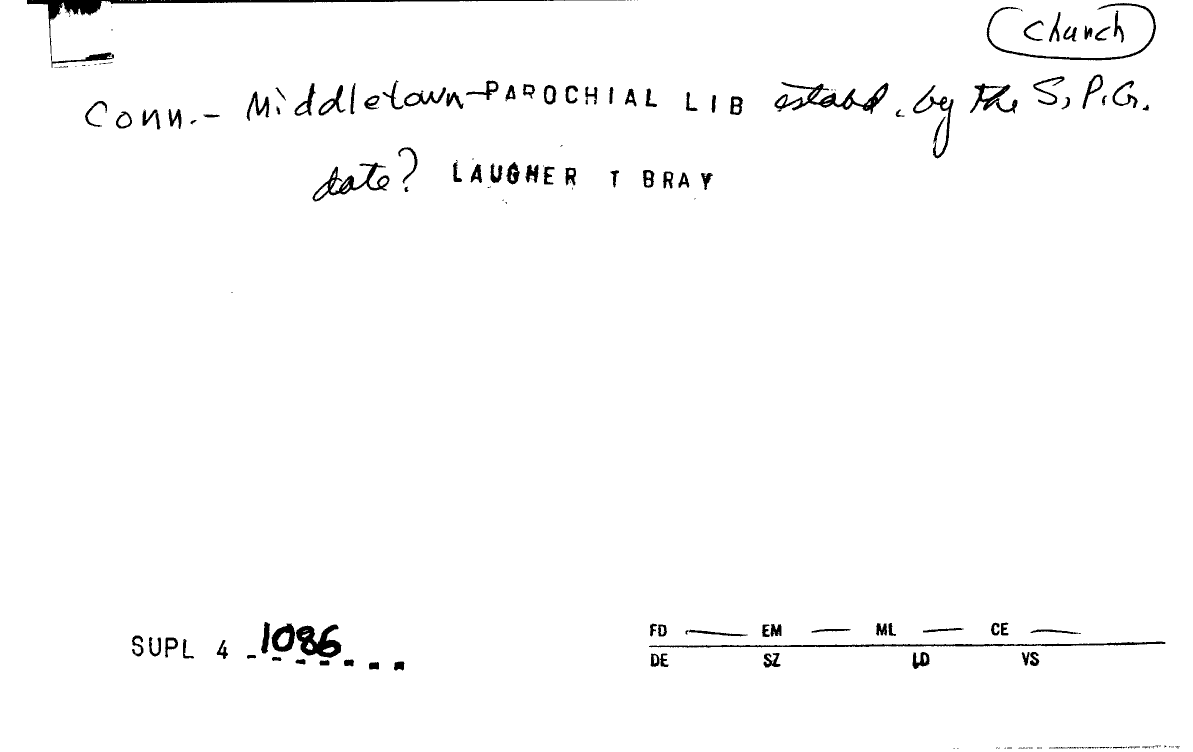 Church
Conn. - Middletown - PAROCHIAL LIB estabd. by the S.P.G.
date? LAUGHER T BRAY
SUPL 4 1086
FD — EM — ML — CE —
DE SZ LD VS